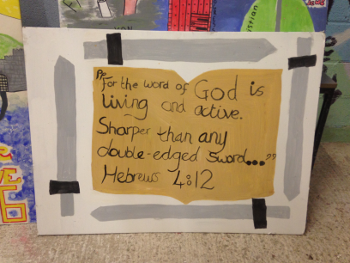 "For the word of God is
living and active.
Sharper than any
double-edged sword..."
Hebrews 4:12